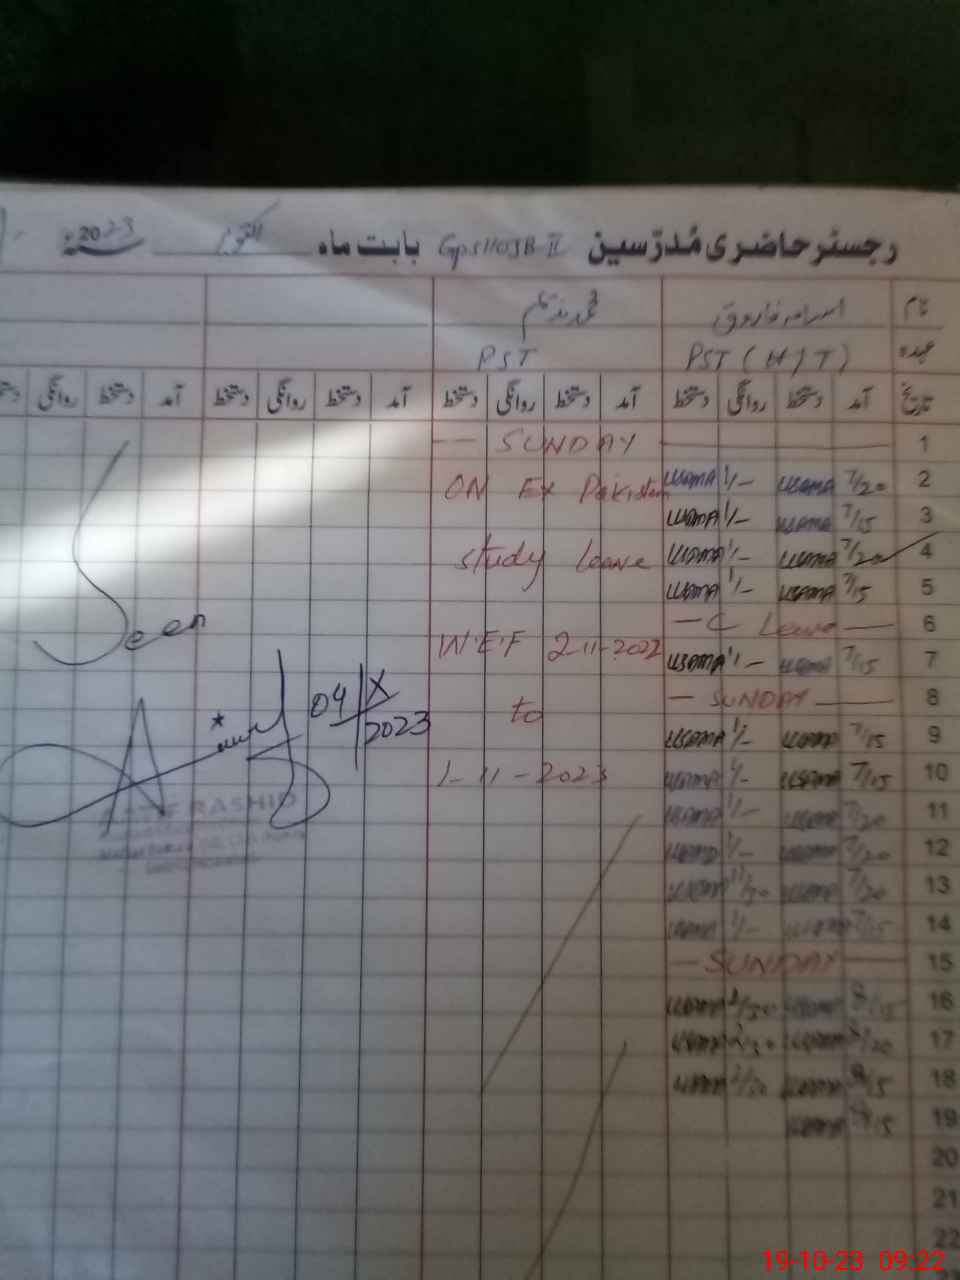 رجسٹر حاضری مُدرّسین GPS 1103B-II بابت ماہ اکتوبر 2023
نام اسامہ فاروق محمد ندیم
عہدہ PST (H/T) PST
تاریخ آمد دستخط روانگی دستخط آمد دستخط روانگی دستخط آمد دستخط روانگی دستخط آمد دستخط روانگی دستخط
1 SUNDAY
2 7/20 USAMA 1/- USAMA ON Ex Pakistan
3 7/15 USAMA 1/- USAMA
4 7/20 USAMA 1/- USAMA study leave
5 7/15 USAMA 1/- USAMA
6 C Leave
7 7/15 USAMA 1/- USAMA W.E.F 2-11-2022
8 SUNDAY to
9 7/15 USAMA 1/- USAMA
10 7/15 USAMA 1/- USAMA 1-11-2023
11 7/20 USAMA 1/- USAMA
12 7/20 USAMA 1/- USAMA
13 7/20 USAMA USAMA
14 7/15 USAMA 1/- USAMA
15 SUNDAY
16 8/15 USAMA USAMA
17 8/20 USAMA USAMA
18 8/15 USAMA USAMA
19 USAMA
20
21
22
Seen
04/X/2023
RASHID
19-10-23 09:22